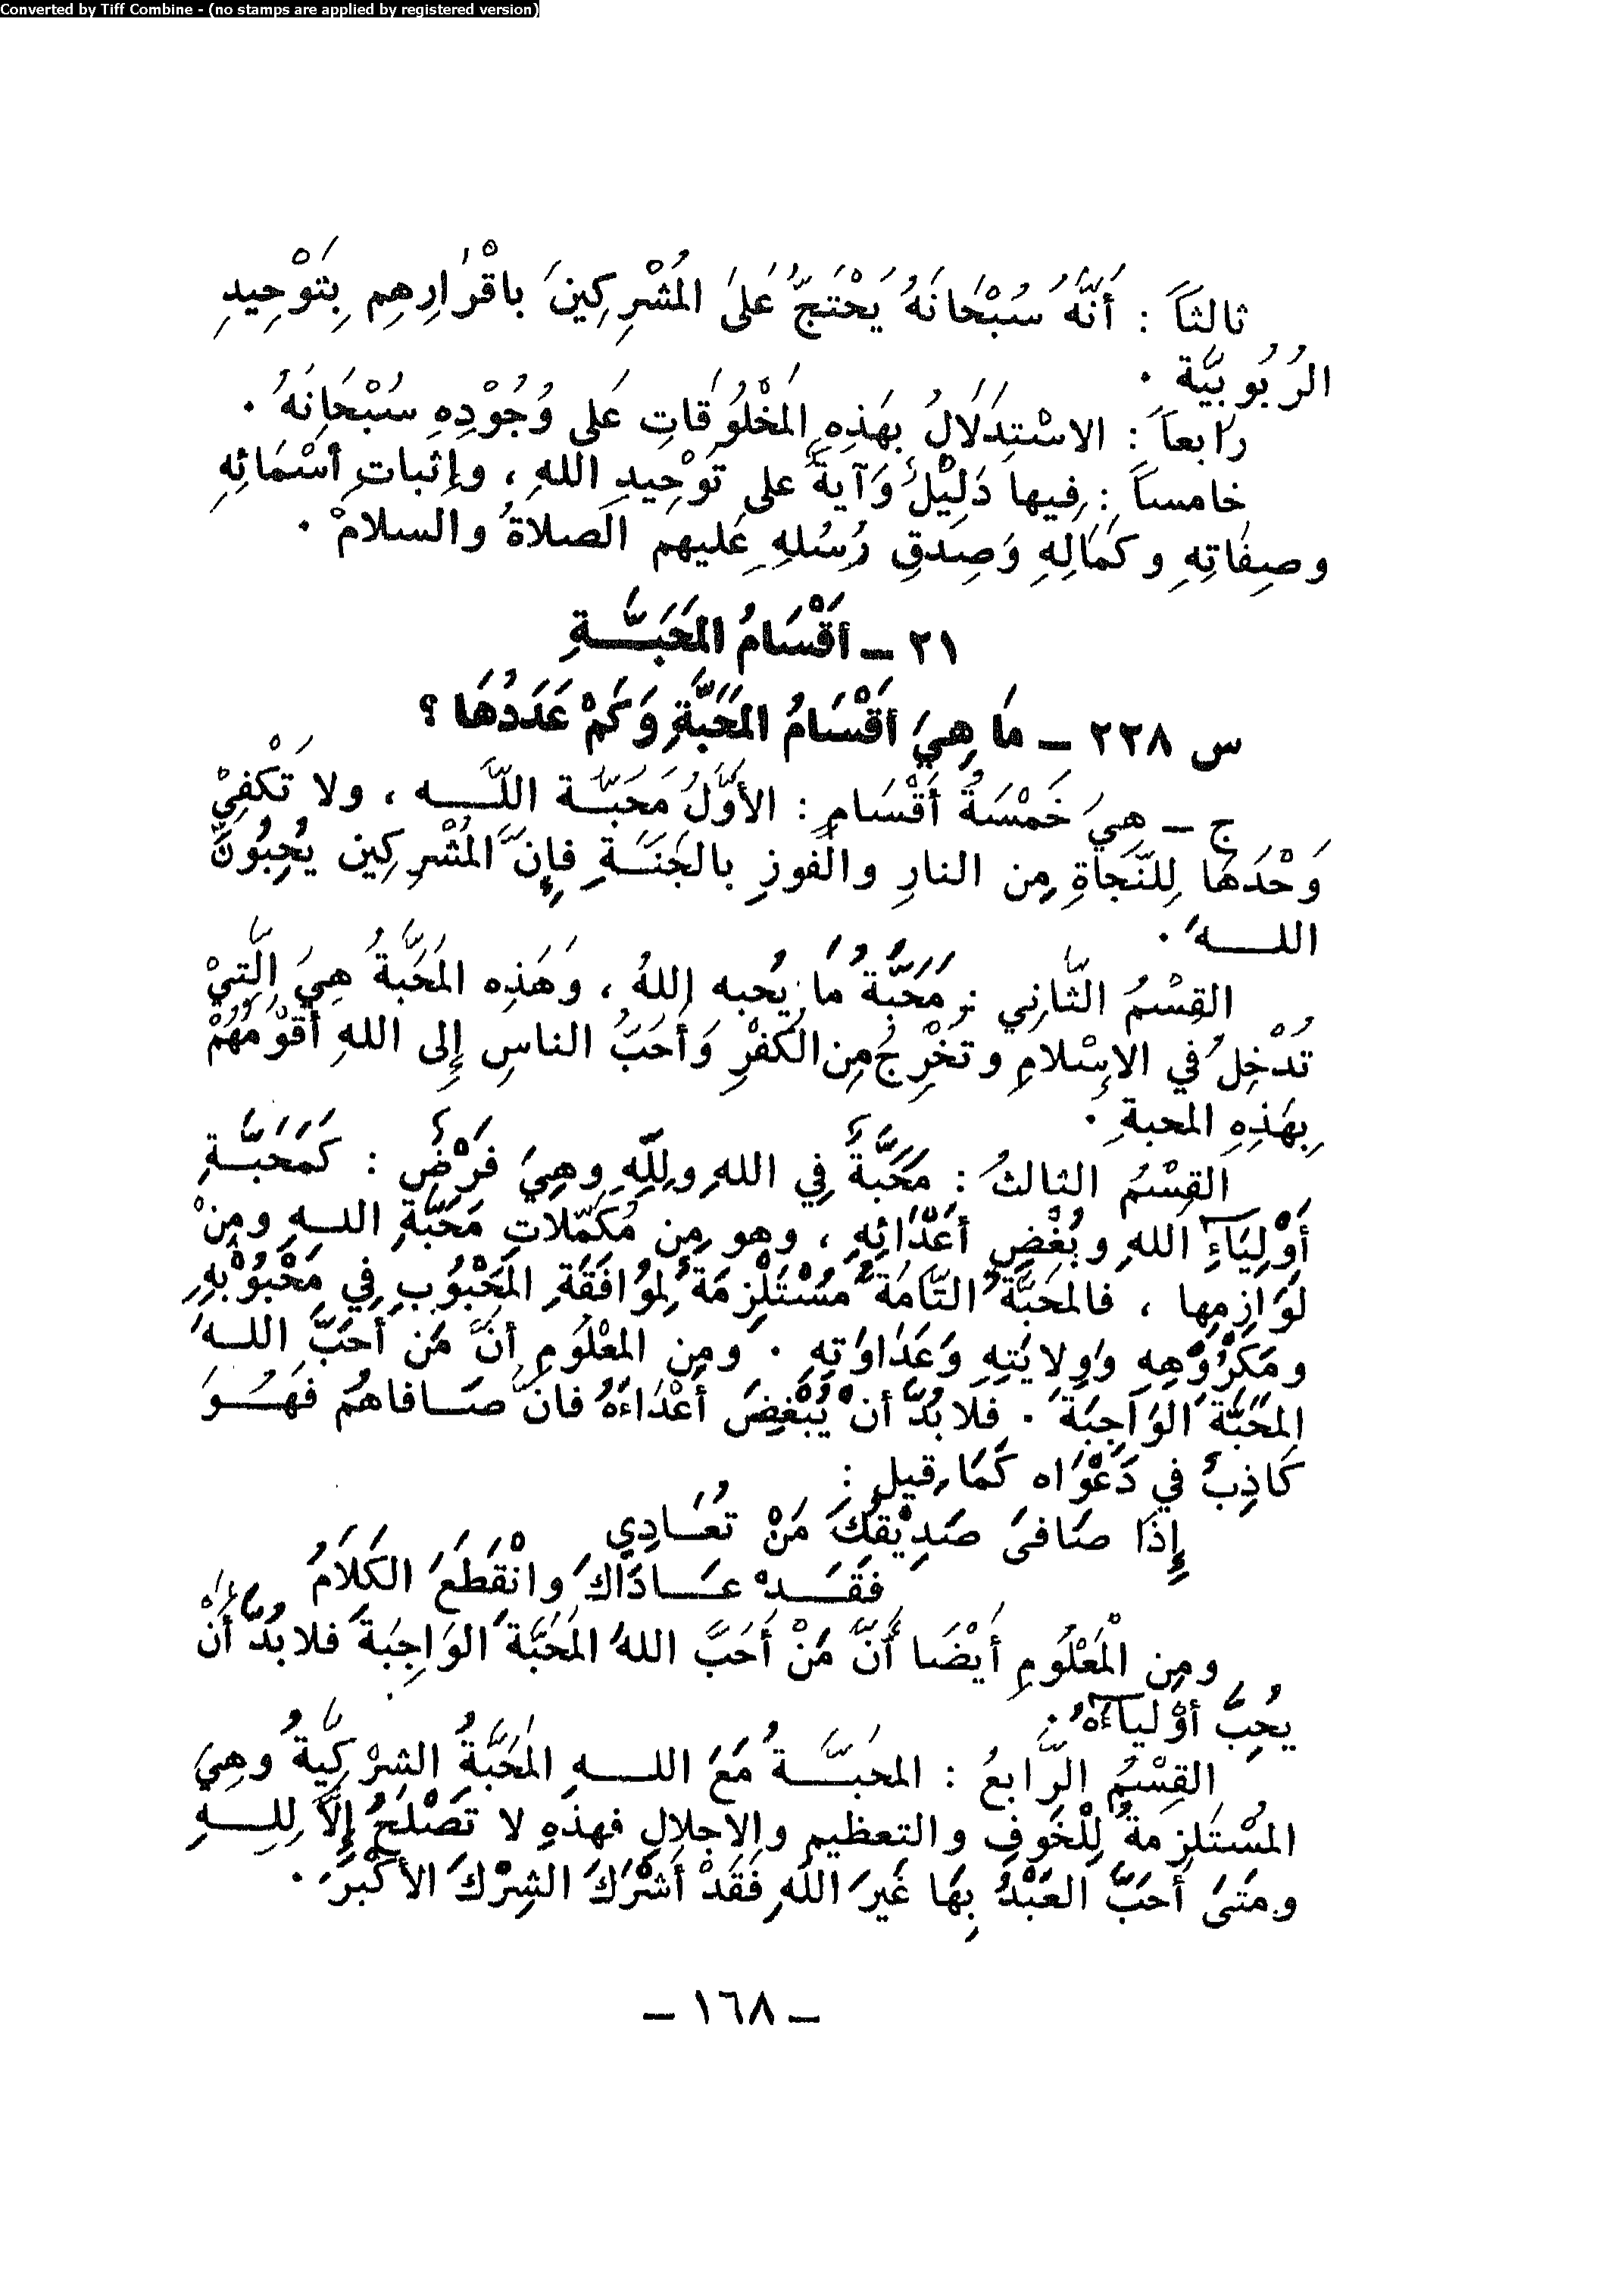 Converted by Tiff Combine - (no stamps are applied by registered version)
ثالثاً : أَنَّهُ سُبْحَانَهُ يَحْتَجُّ عَلىَ المُشْرِكِينَ باقْرارِهِم بِتَوْحِيدِ
الرُبُوبيَّة .
رَابعاً : الاسْتِدَلَالُ بِهَذِهِ المَخْلُوَقَاتِ عَلى وُجُوْدِهِ سُبْحَانَهُ .
خامساً : فِيها دَلِيْلٌ وَآيةٌ على تَوْحِيدِ اللهِ ، وإِثباتِ أسْمَائِهِ
وصِفَاتِهِ وكَمَالِهِ وَصِدقِ رُسُلهِ عَليهم الصلاةُ والسلامْ .
٢١ – أقْسَامُ المَحَبَّةِ
س ٢٣٨ – مَا هِيَ أقْسَامُ المَحَبَّةِ وَكَمْ عَدَدُهَا ؟
ج – هِيَ خَمْسَةُ أَقْسَامٍ : الأَوَّلُ مَحَبَّة اللَّه ، ولا تَكْفِيْ
وَحْدَهَا لِلنَّجَاةِ مِن النارِ والفَوزِ بالجَنَةِ فإِنَّ المُشْرِكين يُحِبُونَ
اللهَ .
القِسْمُ الثَّانِي : مَحَبَّةُ مَا يُحبه اللهُ ، وَهَذِه المَحَبةُ هِيَ الَّتيْ
تُدْخِلُ في الإِسْلامِ وتُخْرِجُ مِن الكُفْرِ وَأَحَبُّ الناسِ إِلى اللهِ أَقْوَمُهُمْ
بِهَذِهِ المحبةِ .
القِسْمُ الثالثُ : مَحَبَّةٌ فِي اللهِ ولِلَّهِ وهِيَ فَرْضٌ : كَمَحَبَّةِ
أَوْلِيَاءِ اللهِ وبُغْضِ أَعْدَائِهِ ، وهو مِن مُكَمِّلاتِ مَحَبَّةِ اللهِ ومِنْ
لَوَازِمِها ، فالمحَبَّةُ التَّامَةُ مُسْتَلْزِمَةٌ لِمُوَافَقَةِ المَحْبُوبِ فِي مَحْبُوْبِهِ
ومَكْرُوْهِهِ وَوِلايَتِهِ وَعَدَاوَتهِ . ومِن المَعْلُومِ أَنَّ مَن أَحَبَّ اللهَ
المَحَبَّةَ الوَاجِبَةَ . فلَا بُدَّ أنْ يُبْغِضَ أَعْدَاءَهُ فانْ صَافاهُم فَهُوَ
كَاذِبٌ في دَعْوَاه كَمَا قِيل :
إِذَا صَافىَ صَدِيْقُكَ مَنْ تُعَادِي
فقَدْ عَادَاكَ وانْقَطَعَ الكَلَامُ
ومِن الْمَعْلُومِ أَيْضَا أَنَّ مَنْ أَحَبَّ اللهُ المَحَبَّةَ الوَاجِبَةَ فلا بُدَّ أَنْ
يُحِبَّ أوْلياءَهُ .
القِسْمُ الرَّابعُ : المحَبَّةُ مَعَ اللهِ المَحَبَّةُ الشِرْكِيَّةُ وهِيَ
المسْتَلزِمةُ لِلْخَوفِ والتعظيم والاجلالِ فهذهِ لا تَصْلَحُ إِلاَّ لِلهِ
ومَتىَ أَحَبَّ العَبْدُ بِهَا غَيرَ اللهِ فَقَدْ أَشْرَكَ الشِرْكَ الأكْبَرَ .
– ١٦٨ –